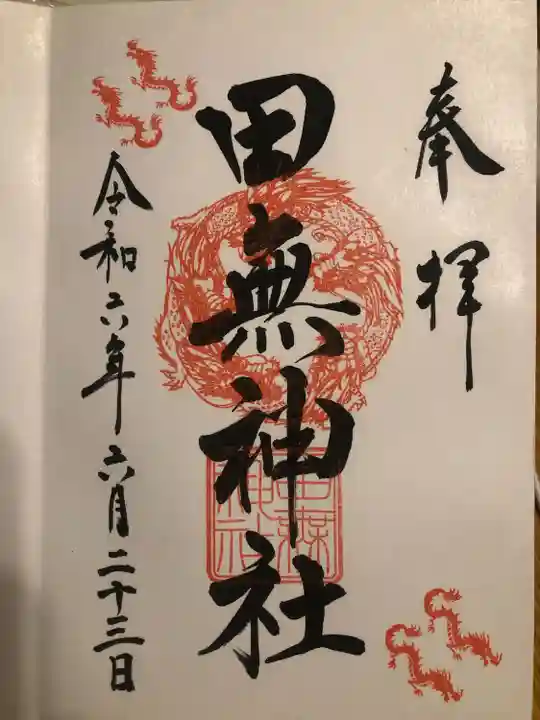 奉拝
田無神社
田無神社
令和六年六月二十三日